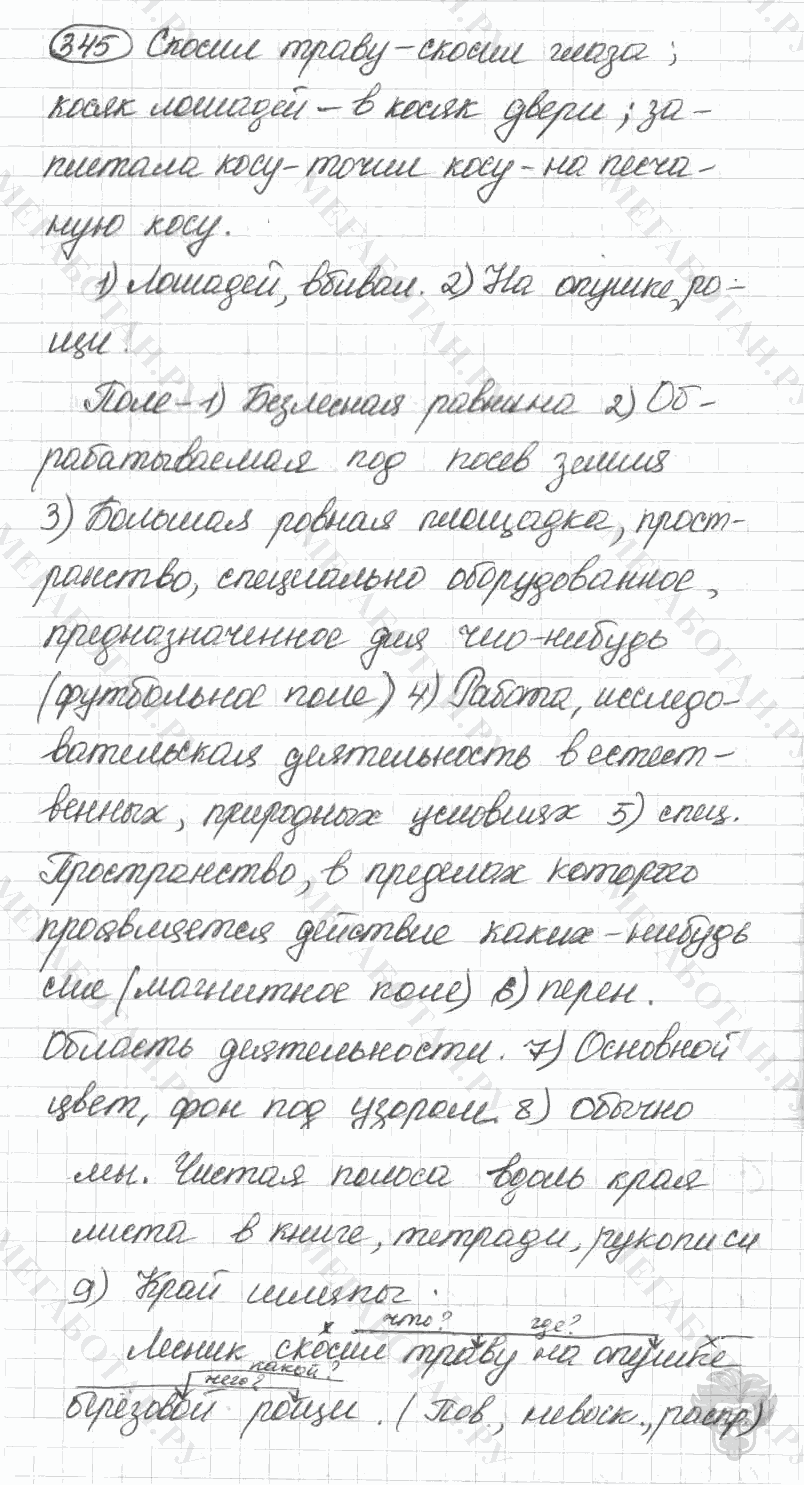 345 Скосил траву – скосил глаза ;
косяк лошадей – в косяк двери ; за-
плетала косу – точил косу – на песча-
ную косу.
1) Лошадей, вбивал. 2) На опушке, ро-
щи.
Поле – 1) Безлесная равнина 2) Об-
рабатываемая под посев земля
3) Большая ровная площадка, прост-
ранство, специально оборудованное,
предназначенное для чио-нибудь
(футбольное поле) 4) Работа, исследо-
вательская деятельность в естест-
венных, природных условиях 5) спец.
Пространство, в пределах которого
проявляется действие каких-нибудь
сил (магнитное поле) 6) перен.
Область деятельности. 7) Основной
цвет, фон под узором. 8) Обычно
мн. Чистая полоса вдоль края
листа в книге, тетради, рукописи
9) Край шляпы.
что? где?
Лесник скосил траву на опушке
какой?
чего?
берёзовой рощи. (Пов., невоск., распр)
МЕГАБОТАН.РУ